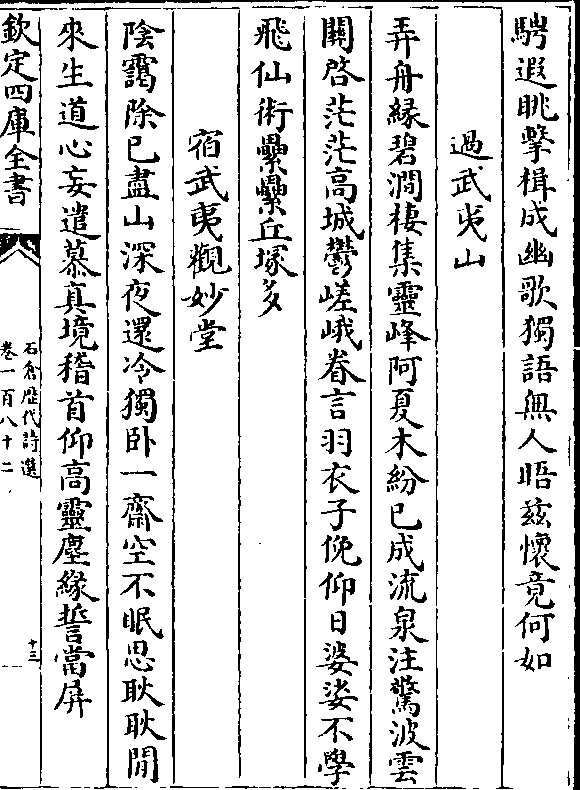 騁遐眺擊楫成幽歌獨語無人晤兹懷竟何如
過武夷山
弄舟緣碧澗棲集靈峰阿夏木紛已成流泉注驚波雲
關啓茫茫高城鬱嵯峨眷言羽衣子俛仰日婆娑不學
飛仙術纍纍丘塚多
宿武夷觀妙堂
陰靄除已盡山深夜還冷獨卧一齋空不眠思耿耿閒
來生道心妄遣慕真境稽首仰高靈塵緣誓當屏
欽定四庫全書
石倉歷代詩選
卷一百八十二
十三